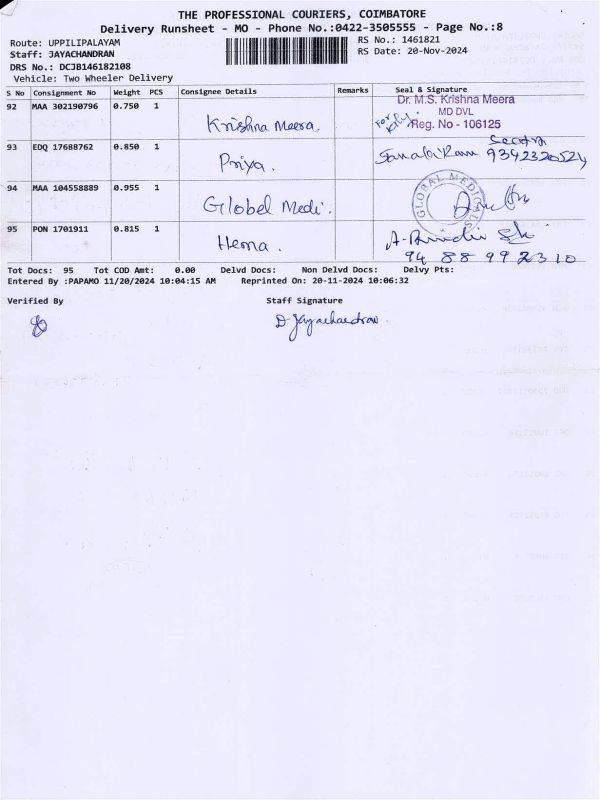 THE PROFESSIONAL COURIERS, COIMBATORE
Delivery Runsheet - MO - Phone No.:0422-3505555 - Page No.:8
Route: UPPILIPALAYAM
RS No.: 1461821
Staff: JAYACHANDRAN
RS Date: 20-Nov-2024
DRS No.: DCJB146182108
Vehicle: Two Wheeler Delivery
S No Consignment No Weight PCS Consignee Details Remarks Seal & Signature
92 MAA 302190796 0.750 1 Krishna Meera.
Dr. M.S. Krishna Meera
MD DVL
Reg. No - 106125
For
93 EDQ 17688762 0.850 1 Priya.
9342320524
94 MAA 104558889 0.955 1 Globel Medi.
GLOBAL MEDICALS
95 PON 1701911 0.815 1 Hema.
94 88 99 2310
Tot Docs: 95 Tot COD Amt: 0.00 Delvd Docs: Non Delvd Docs: Delvy Pts:
Entered By :PAPAMO 11/20/2024 10:04:15 AM Reprinted On: 20-11-2024 10:06:32
Verified By Staff Signature
D Jayachandran